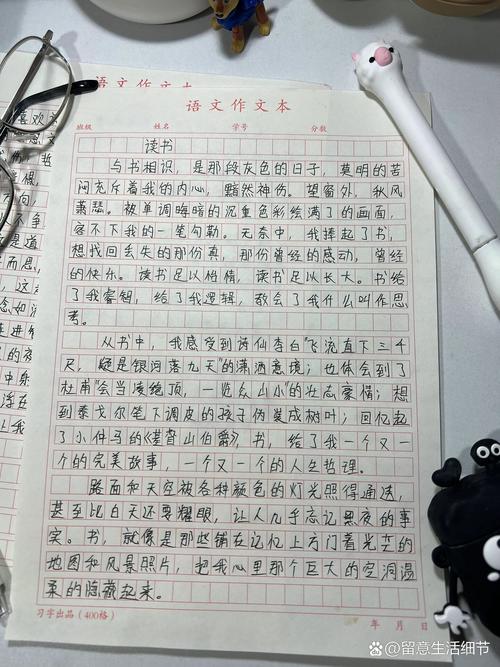 语文作文本
语文作文本
班级 姓名 学号 分数
读书
与书相识，是那段灰色的日子，莫明的苦
闷充斥着我的内心，黯然神伤。望窗外，秋风
萧瑟。被单调晦暗的沉重色彩绘满了的画面，
容不下我的一笔勾勒。无奈中，我捧起了书，
想找回丢失的那份真，那份曾经的感动，曾经
的快乐。读书足以怡情，读书足以长大。书给
了我睿智，给了我逻辑，教会了我什么叫作思
考。
从书中，我感受到诗仙李白“飞流直下三千
尺，疑是银河落九天”的潇洒意境；也体会到了
杜甫“会当凌绝顶，一览众山小”的壮志豪情；想
到泰戈尔笔下调皮的孩子伪装成树叶；回忆起
了小仲马的《基督山伯爵》，书，给了我一个又一
个的完美故事，一个又一个的人生哲理。
路面和天空被各种颜色的灯光照得通透，
甚至比白天还要耀眼，让人几乎忘记黑夜的事
实。书，就像是那些铺在记忆上方门着光芒的
地图和风景照片，把我心里那个巨大的空洞温
柔的隐藏起来。
习字出品（400格） 年 月 日
留意生活细节